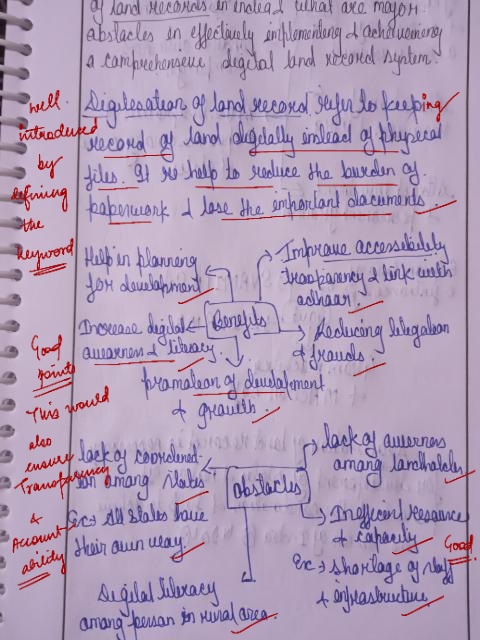 of land records in India & what are major
obstacles in effectively implementing &
a comprehensive digital land record system.
Digilisation of land record refer to keeping
record of land digitally instead of physical
files. It help to reduce the burden of
paperwork & lose the important documents.
well
introduced
by
defining
the
keyword
Help in planning
for development
Improve accessibility
& link with
adhaar.
Benefits
Increase digital
awarness & literacy.
Reducing
& frauds
of development
& growth
Good
points
This would
also
ensure
Transparency
&
Account-
ability
lack of
among states
Ex:- All States have
their own way.
Obstacles
lack of awerness
among landholders
Inefficient resource
& capacity
Good
Ex:- shortage of staff
& infrastructure
Digital literacy
among person in rural area